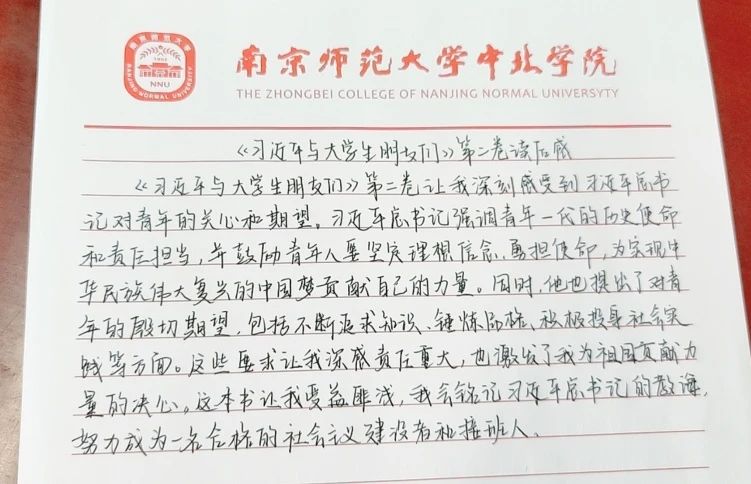 南京师范大学
1902
NNU
NANJING NORMAL UNIVERSITY
南京师范大学中北学院
THE ZHONGBEI COLLEGE OF NANJING NORMAL UNIVERSYTY
《习近平与大学生朋友们》第二卷读后感
《习近平与大学生朋友们》第二卷让我深刻感受到习近平总书
记对青年的关心和期望。习近平总书记强调青年一代的历史使命
和责任担当，并鼓励青年人要坚定理想信念、勇担使命，为实现中
华民族伟大复兴的中国梦贡献自己的力量。同时，他也提出了对青
年的殷切期望，包括不断追求知识、锤炼品格、积极投身社会实
践等方面。这些要求让我深感责任重大，也激发了我为祖国贡献力
量的决心。这本书让我受益匪浅，我会铭记习近平总书记的教诲，
努力成为一名合格的社会主义建设者和接班人。